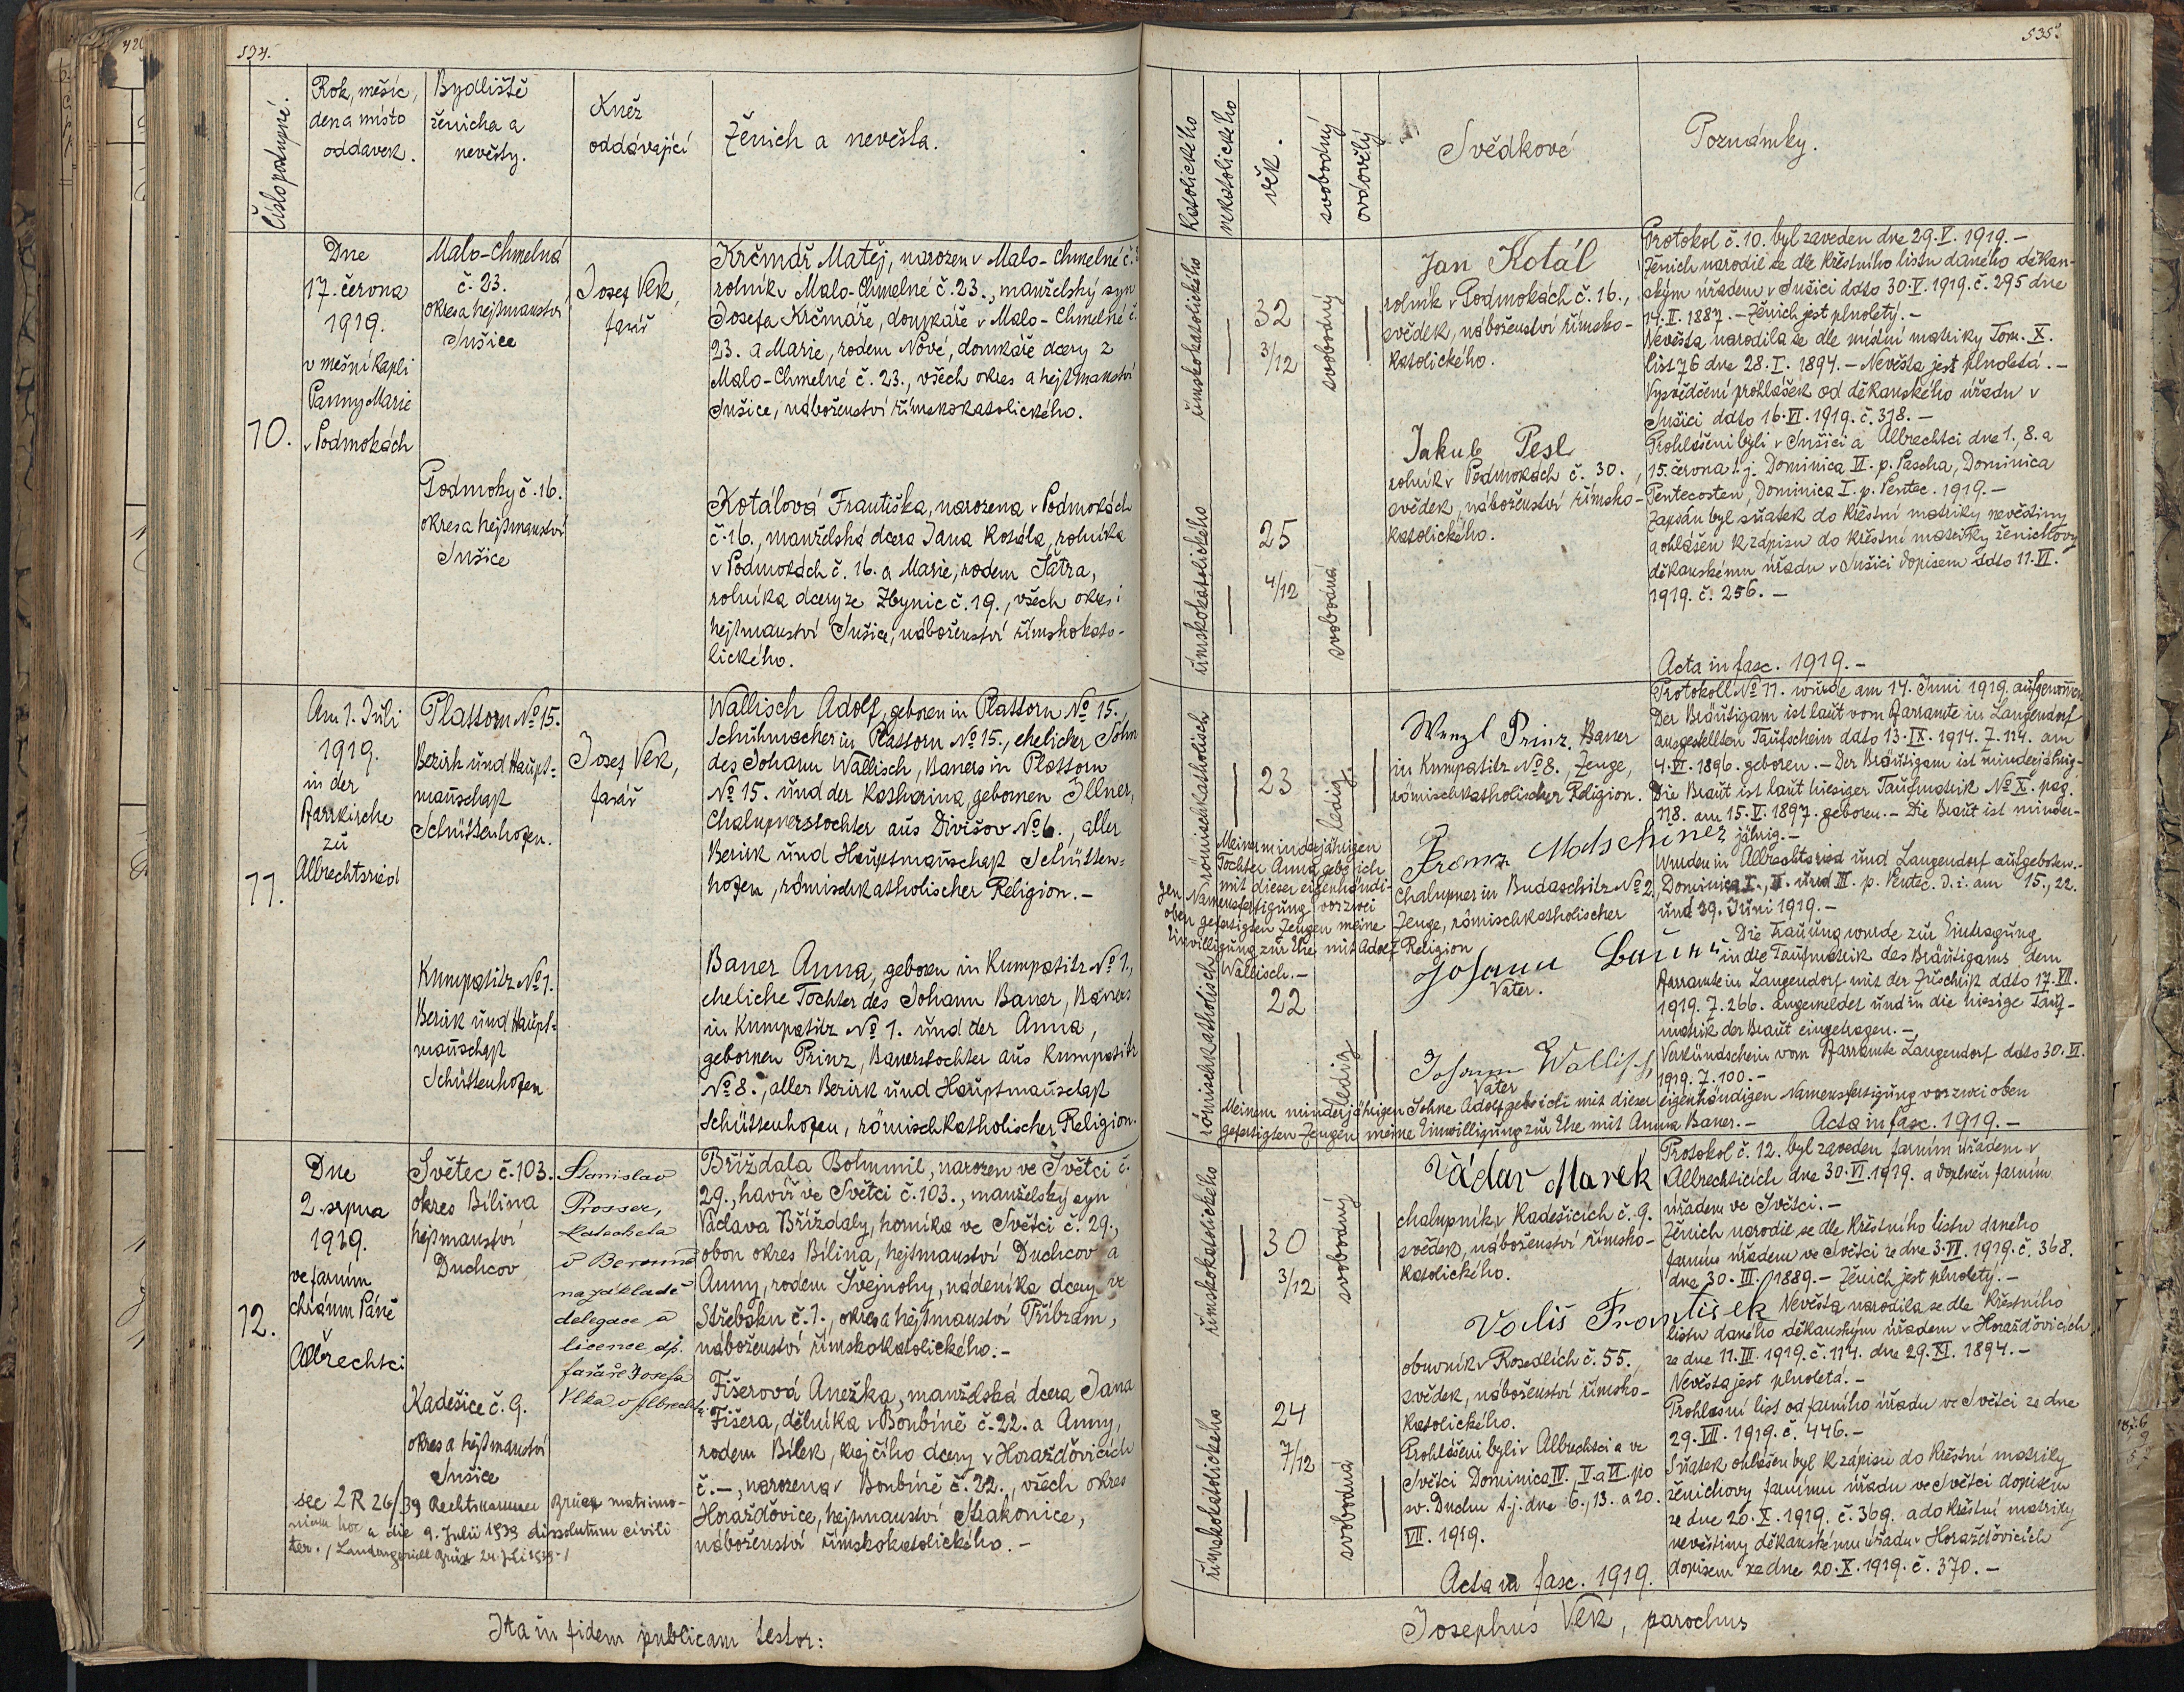 534.
Číslo postupné.
Rok, měsíc,
den a místo
oddavek.
Bydliště
ženicha a
nevěsty.
Kněz
oddávající
Ženich a nevěsta.
10.
Dne
17. června
1919.
v mešní kapli
Panny Marie
v Podmokách
Malo-Chmelná
č. 23.
okres a hejtmanství
Sušice
Podmoky č. 16.
okres a hejtmanství
Sušice
Josef Vlk,
farář
Krčmář Matěj, narozen v Malo-Chmelné č.
rolník v Malo-Chmelné č. 23., manželský syn
Josefa Krčmáře, domkáře v Malo-Chmelné č.
23. a Marie, rodem Nové, domkáře dcery z
Malo-Chmelné č. 23., všech okres a hejtmanství
Sušice, náboženství římskokatolického.
Kotálová Františka, narozena v Podmokách
č. 16., manželská dcera Jana Kotála, rolníka
v Podmokách č. 16. a Marie, rodem Šatra,
rolníka dcery ze Zbynic č. 19., všech okres i
hejtmanství Sušice, náboženství římskokato-
lického.
11.
Am 1. Juli
1919.
in der
Pfarrkirche
zu
Albrechtsried
Plattorn No 15.
Bezirk und Haupt-
mannschaft
Schüttenhofen.
Kumpatitz No 1.
Bezirk und Haupt-
mannschaft
Schüttenhofen
Josef Vlk,
farář
Wallisch Adolf, geboren in Plattorn No 15.,
Schuhmacher in Plattorn No 15., ehelicher Sohn
des Johann Wallisch, Bauers in Plattorn
No 15. und der Katharina, gebornen Illner,
Chalupnerstochter aus Divišov No 6., aller
Bezirk und Hauptmannschaft Schütten-
hofen, römischkatholischer Religion.-
Bauer Anna, geboren in Kumpatitz No 1.,
eheliche Tochter des Johann Bauer, Bauers
in Kumpatitz No 1. und der Anna,
gebornen Prinz, Bauerstochter aus Kumpatitz
No 8., aller Bezirk und Hauptmannschaft
Schüttenhofen, römischkatholischer Religion.
12.
Dne
2. srpna
1919.
ve farním
chrámu Páně
Albrechtci
Světec č. 103.
okres Bílina
hejtmanství
Duchcov
Kadešice č. 9.
okres a hejtmanství
Sušice
Stanislav
Prosser,
katecheta
v Berouně
na základě
delegace a
licence dp.
faráře Josefa
Vlka v Albrechti.
Bříždala Bohumil, narozen ve Světci č.
29., havíř ve Světci č. 103., manželský syn
Václava Bříždaly, horníka ve Světci č. 29.,
obou okres Bílina, hejtmanství Duchcov a
Anny, rodem Švejnohy, nádeníka dcery ve
Střebsku č. 1., okres a hejtmanství Příbram,
náboženství římskokatolického.-
Fišerová Anežka, manželská dcera Jana
Fišera, dělníka v Boubíně č. 22. a Anny,
rodem Bílek, krejčího dcery v Horažďovicích
č. -, narozena v Boubíně č. 22., všech okres
Horažďovice, hejtmanství Strakonice,
náboženství římskokatolického.-
sec 2 R 26/39 Rechtskammer Brüx matrimo-
nium hoc a die 9. Julii 1939 dissolutum civili
ter. / Landesgericht Brüx 24. Juli 1939 /
Ita in fidem publicam testor:
535.
katolického
nekatolického
věk.
svobodný
ovdovělý
Svědkové
Poznámky.
římskokatolického
32
3/12
svobodný
římskokatolického
25
4/12
svobodná
Jan Kotál
rolník v Podmokách č. 16.,
svědek, náboženství římsko-
katolického.
Jakub Pesl
rolník v Podmokách č. 30.,
svědek, náboženství římsko-
katolického.
Protokol č. 10. byl zaveden dne 29. V. 1919.-
Ženich narodil se dle křestního listu daného děkan-
ským úřadem v Sušici ddto 30. V. 1919. č. 295 dne
14. II. 1887. - Ženich jest plnoletý.-
Nevěsta narodila se dle místní matriky Tom. X.
list 76 dne 28. I. 1894. - Nevěsta jest plnoletá.-
Vysvědčení prohlášek od děkanského úřadu v
Sušici ddto 16. VI. 1919. č. 318.-
Prohlášeni byli v Sušici a Albrechtci dne 1., 8. a
15. června t.j. Dominica VI. p. Pascha, Dominica
Pentecosten, Dominica I. p. Pentec. 1919.-
Zapsán byl sňatek do křestní matriky nevěstiny
a ohlášen k zápisu do křestní matriky ženichovy
děkanskému úřadu v Sušici dopisem ddto 11. VI.
1919. č. 256.-
Acta in fasc. 1919.-
römischkatholisch
23
ledig.
Meiner minderjährigen
Tochter Anna gebe ich
mit dieser eigenhändi-
gen Namensfertigung vor zwei
oben gefertigten Zeugen meine
Einwilligung zur Ehe mit Adolf
Wallisch.-
römischkatholisch
22
ledig
Wenzl Prinz, Bauer
in Kumpatitz No 8., Zeuge,
römischkatholischer Religion.
Franz Motschiner
Chalupner in Budaschitz No 2,
Zeuge, römischkatholischer
Religion
Johann Bauer
Vater.
Johann Wallisch
Vater
Meinem minderjährigen Sohne Adolf gebe ich mit dieser eigenhändigen Namensfertigung vor zwei oben
gefertigten Zeugen meine Einwilligung zur Ehe mit Anna Bauer.- Acta in fasc. 1919.-
Protokoll No 11. wurde am 14. Juni 1919. aufgenommen
Der Bräutigam ist laut vom Pfarramte in Langendorf
ausgestellten Taufschein ddto 13. IX. 1914. Z. 114. am
4. VI. 1896. geboren.- Der Bräutigam ist minderjährig-
Die Braut ist laut hiesiger Taufmatrik No X. pag.
118. am 15. V. 1897. geboren.- Die Braut ist minder-
jährig.-
Wurden in Albrechtsried und Langendorf aufgeboten.-
Dominica I., II. und III. p. Pentec. d. i. am 15., 22.
und 29. Juni 1919.-
Die Trauung wurde zur Eintragung
in die Taufmatrik des Bräutigams dem
Pfarramte in Langendorf mit der Zuschrift ddto 17. VII.
1919. Z. 266. angemeldet und in die hiesige Tauf-
matrik der Braut eingetragen.-
Verkündschein vom Pfarramte Langendorf ddto 30. VI.
1919. Z. 100.-
římskokatolického
30
3/12
svobodný
římskokatolického
24
7/12
svobodná
Václav Marek
chalupník v Kadešicích č. 9.
svědek, náboženství římsko-
katolického.
Voliš František
obuvník v Rosedlích č. 55.,
svědek, náboženství římsko-
katolického.
Prohlášeni byli v Albrechtci a ve
Světci Dominica IV., V. a VI. po
sv. Duchu t.j. dne 6., 13. a 20.
VII. 1919.
Acta in fasc. 1919.
Protokol č. 12. byl zaveden farním úřadem v
Albrechticích dne 30. VI. 1919. a doplněn farním
úřadem ve Světci.-
Ženich narodil se dle křestního listu daného
farním úřadem ve Světci ze dne 3. VI. 1919. č. 368.
dne 30. III. 1889.- Ženich jest plnoletý.-
Nevěsta narodila se dle křestního
listu daného děkanským úřadem v Horažďovicích
ze dne 11. III. 1919. č. 114. dne 29. XI. 1894.-
Nevěsta jest plnoletá.-
Prohlášní list od farního úřadu ve Světci ze dne
29. VII. 1919. č. 446.-
Sňatek ohlášen byl k zápisu do křestní matriky
ženichovy farnímu úřadu ve Světci dopisem
ze dne 20. X. 1919. č. 369. a do křestní matriky
nevěstiny děkanskému úřadu v Horažďovicích
dopisem ze dne 20. X. 1919. č. 370.-
Josephus Vlk, parochus